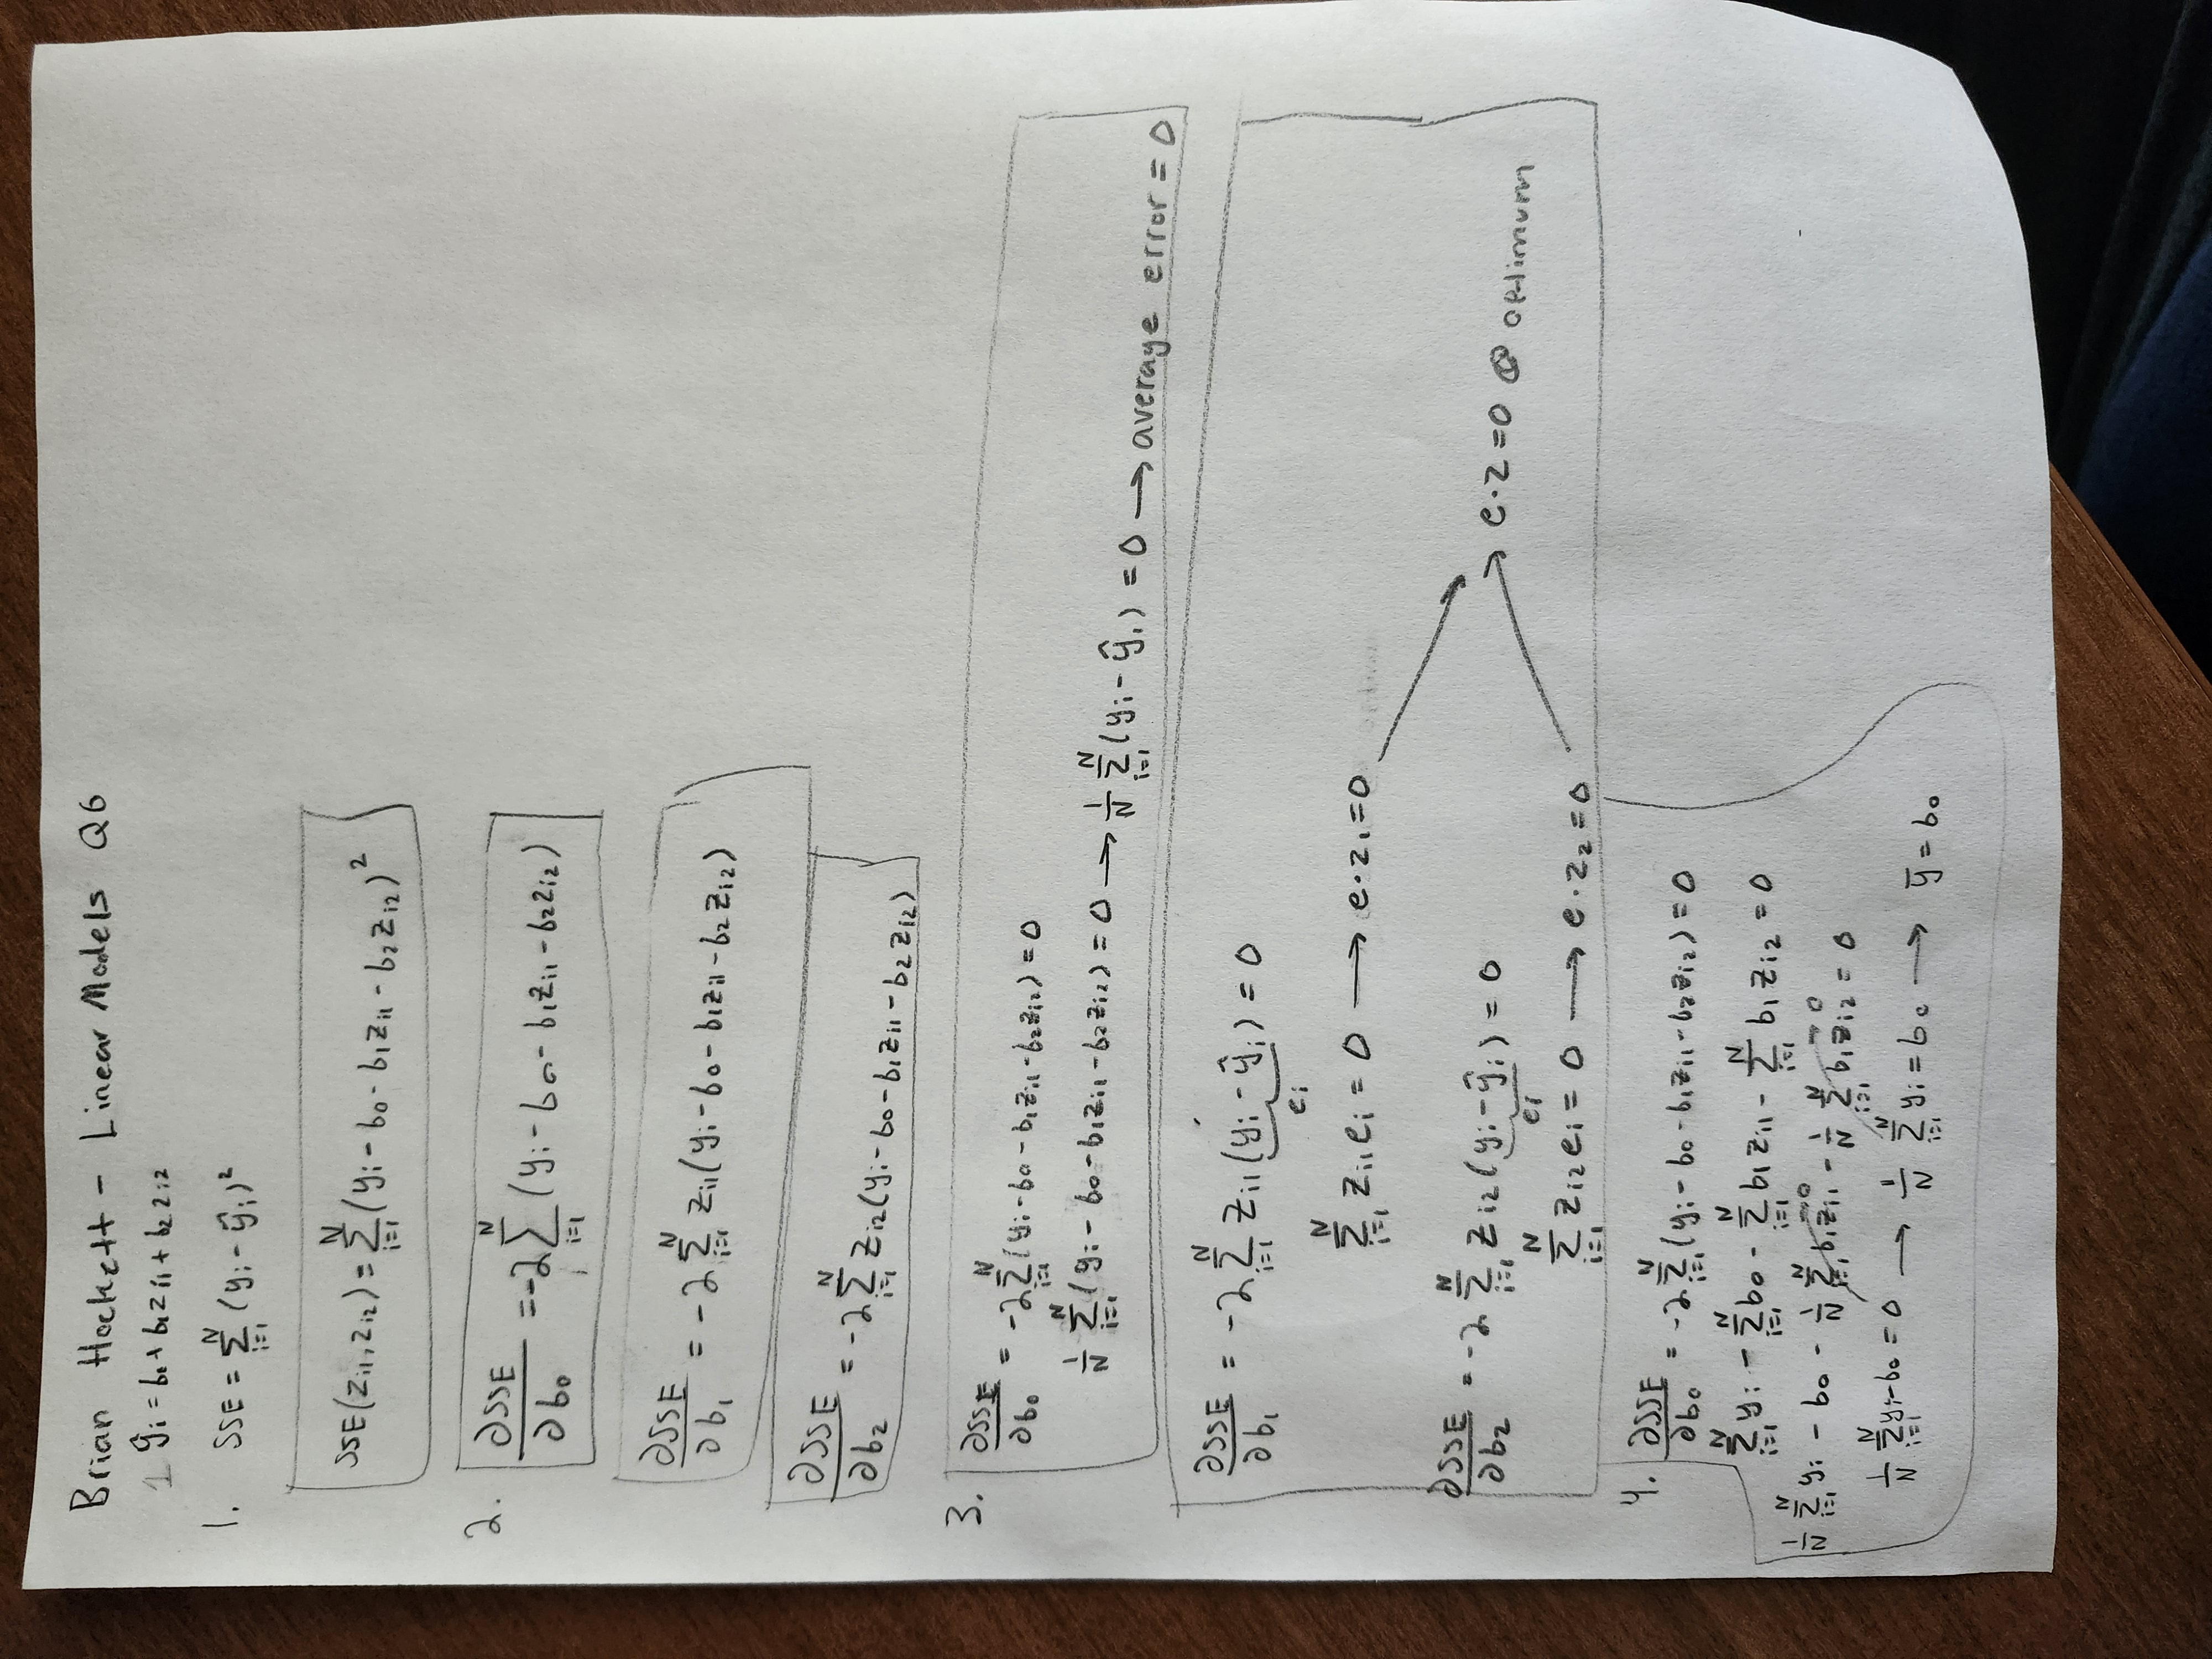 Brian Hockett - Linear Models Q6
1 ŷi = b0 + b1zi1 + b2zi2
1. SSE = Σ_{i=1}^{N} (yi - ŷi)²
SSE(zi1, zi2) = Σ_{i=1}^{N} (yi - b0 - b1zi1 - b2zi2)²
2. ∂SSE/∂b0 = -2 Σ_{i=1}^{N} (yi - b0 - b1zi1 - b2zi2)
∂SSE/∂b1 = -2 Σ_{i=1}^{N} zi1(yi - b0 - b1zi1 - b2zi2)
∂SSE/∂b2 = -2 Σ_{i=1}^{N} zi2(yi - b0 - b1zi1 - b2zi2)
3. ∂SSE/∂b0 = -2 Σ_{i=1}^{N} (yi - b0 - b1zi1 - b2zi2) = 0
1/N Σ_{i=1}^{N} (yi - b0 - b1zi1 - b2zi2) = 0 → 1/N Σ_{i=1}^{N} (yi - ŷi) = 0 → average error = 0
∂SSE/∂b1 = -2 Σ_{i=1}^{N} zi1(yi - ŷi) = 0
ei
Σ_{i=1}^{N} zi1ei = 0 → e·z1 = 0
∂SSE/∂b2 = -2 Σ_{i=1}^{N} zi2(yi - ŷi) = 0
ei
e·z = 0 @ optimum
Σ_{i=1}^{N} zi2ei = 0 → e·z2 = 0
4. ∂SSE/∂b0 = -2 Σ_{i=1}^{N} (yi - b0 - b1zi1 - b2zi2) = 0
Σ_{i=1}^{N} yi - Σ_{i=1}^{N} b0 - Σ_{i=1}^{N} b1zi1 - Σ_{i=1}^{N} b1zi2 = 0
1/N Σ_{i=1}^{N} yi - b0 - 1/N Σ_{i=1}^{N} b1zi1 =0 - 1/N Σ_{i=1}^{N} b1zi2 =0 = 0
1/N Σ_{i=1}^{N} yi - b0 = 0 → 1/N Σ_{i=1}^{N} yi = b0 → ȳ = b0